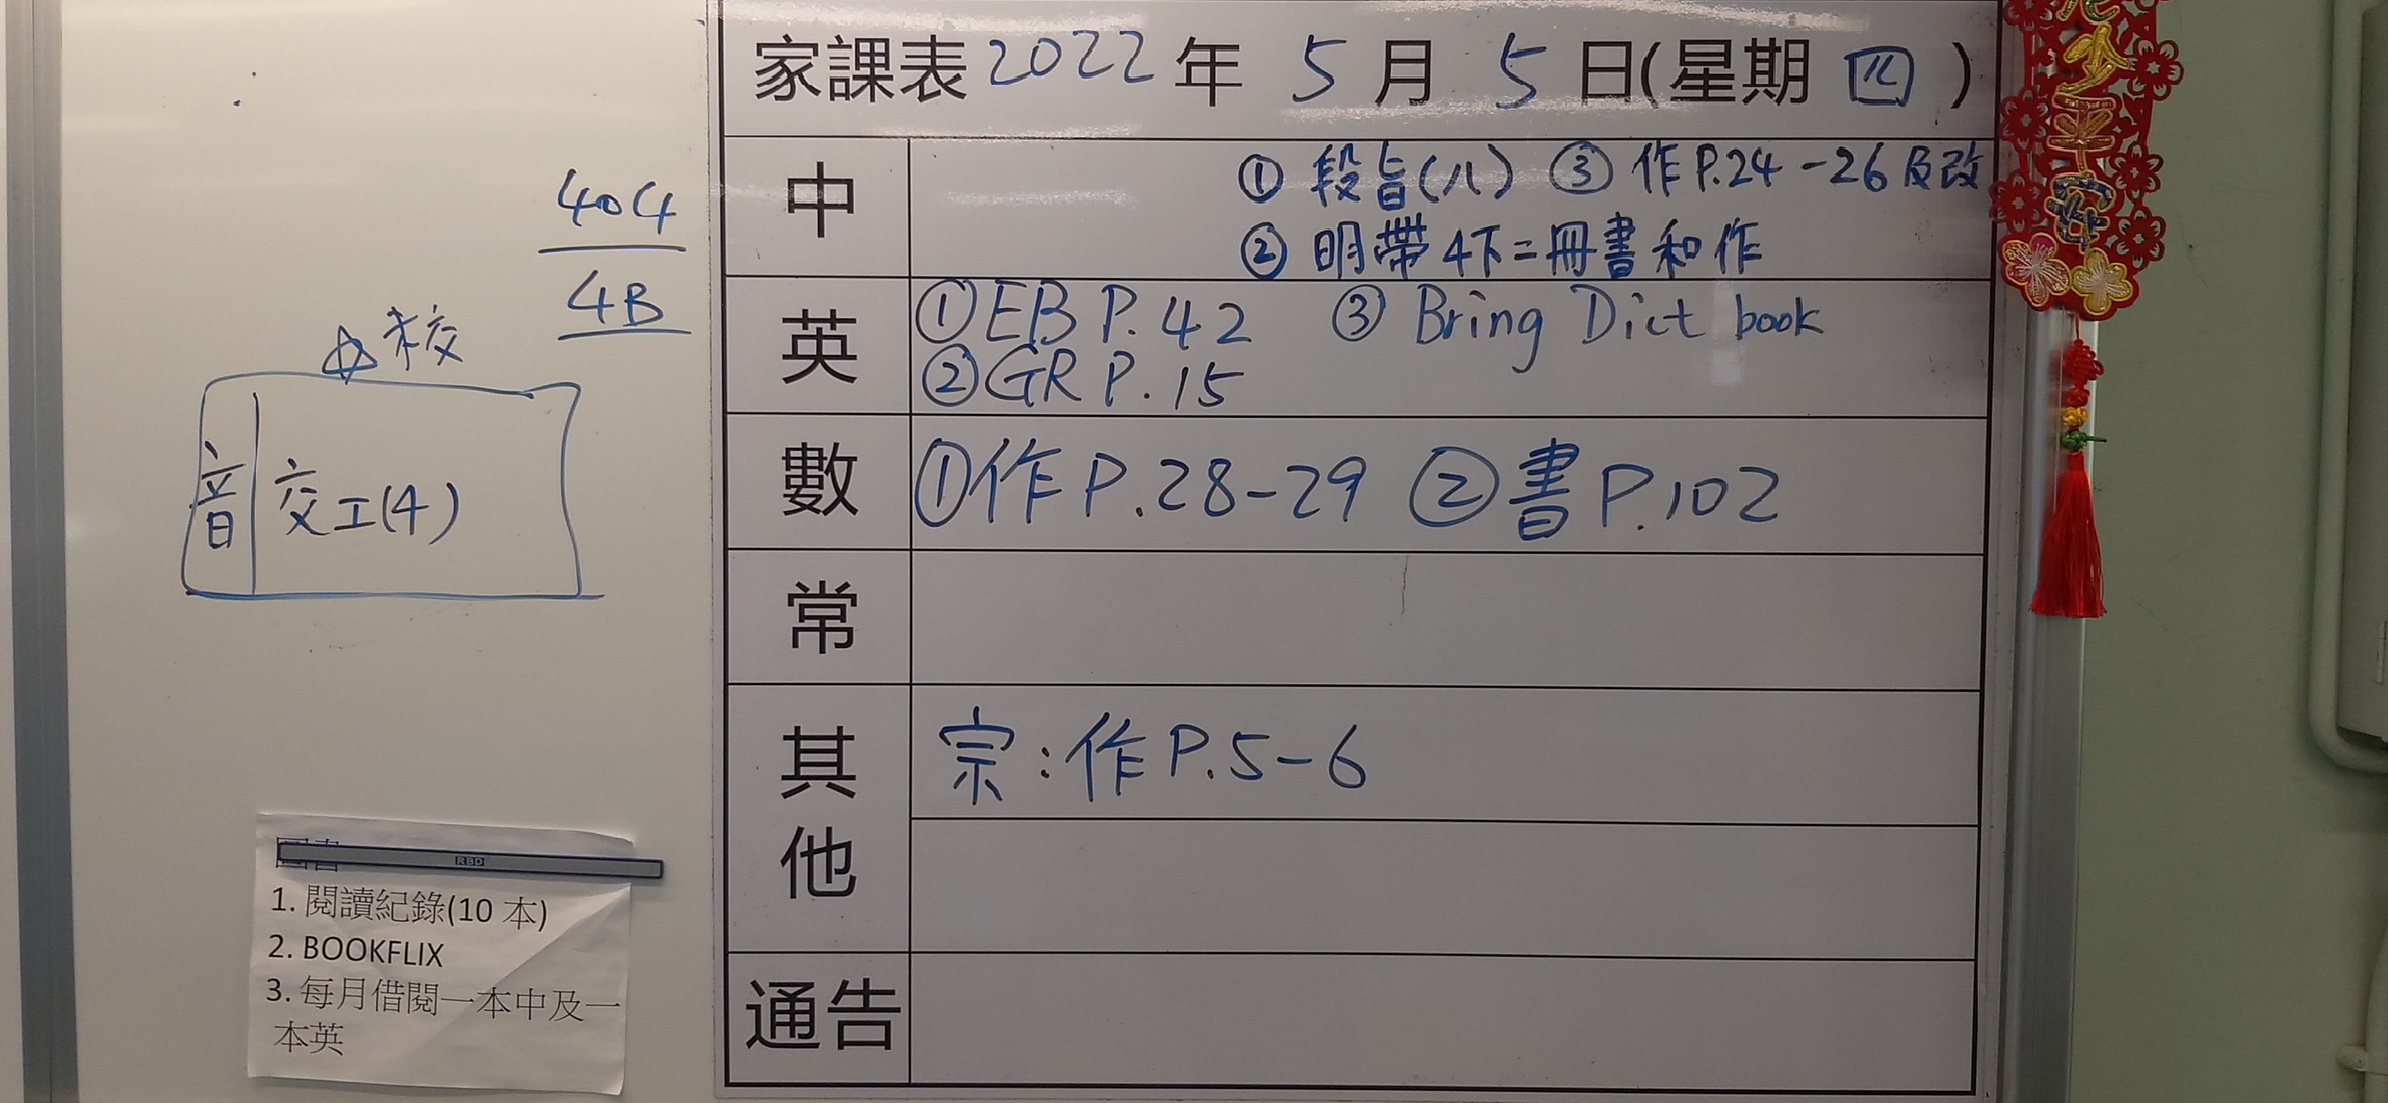 404
4B
校
音 交工(4)
圖書
RBD
1. 閱讀紀錄(10 本)
2. BOOKFLIX
3. 每月借閱一本中及一
本英
家課表 2022 年 5 月 5 日(星期 四)
中 ① 段旨(八) ③ 作P.24-26及改
② 明帶4下二冊書和作
英 ① EB P.42 ③ Bring Dict book
② GR P.15
數 ①作P.28-29 ②書P.102
常
其他 宗:作P.5-6
通告
平安